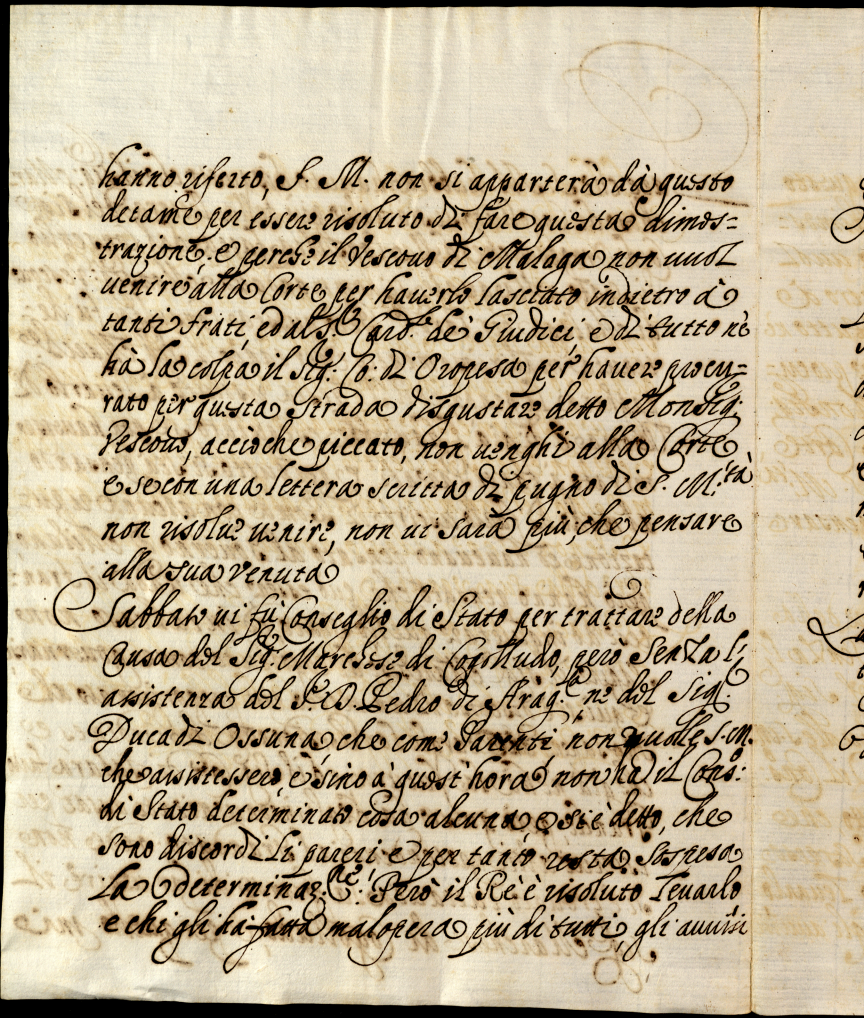 hanno riferto, S. M. non si apparterà dà questo
detame per essere risoluto di fare questa dimos=
trazione, e perche il Vescouo di Malaga non uuol
uenire alla Corte per hauerlo lasciato indietro à
tanti frati, ed al Sr. Card.le de Giudici, e di tutto ne
hà la colpa il Sig.r Co: di Oropesa per hauere procu=
rato per questa strada disgustare detto Monsig.r
Vescouo, accioche piccato, non uenghi alla Corte
e se con una lettera scritta di pugno di S. M.tà
non risolue uenire, non ui sarà più, che pensare
alla sua venuta
Sabbato ui fù Conseglio di Stato per trattare della
Causa del Sig.r Marchese di Cogolludo, però senza l'
assistenza del S. D. Pedro di Arag.na, ne del Sig.r
Duca di Ossuna, che come Parenti non uolle S. M.
che assistessero, e sino à quest' hora non hà il Cons.o
di Stato determinato cosa alcuna, e si è detto, che
sono discordi li pareri e per tanto resta sospesa
la determinaz.ne: Però il Rè è risoluto leuarlo
e chi gli hà fatto mal opera più di tutti, gli auuisi